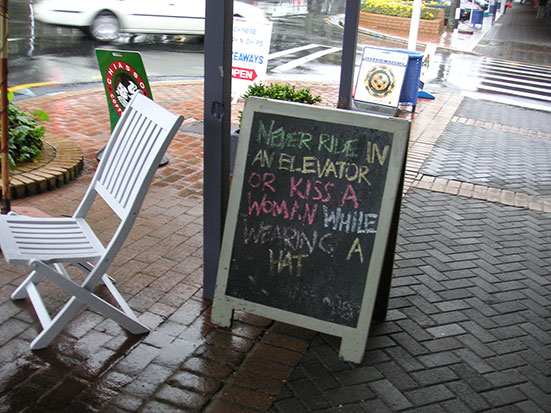 CHINESE
TAKEAWAYS
OPEN
NEVER RIDE IN
AN ELEVATOR
OR KISS A
WOMAN WHILE
WEARING A
HAT